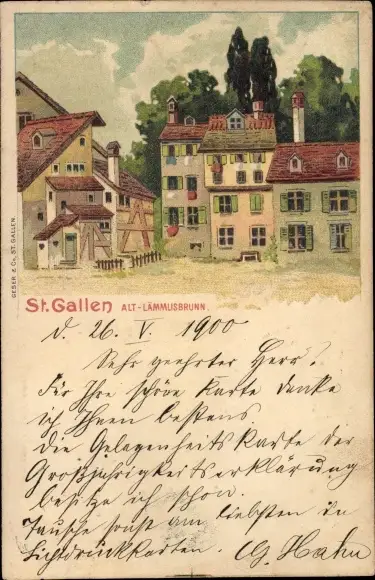 GESER & Co, ST. GALLEN.
St. Gallen ALT-LÄMMUSBRUNN.
d. 26. V. 1900
Sehr geehrter Herr!
Für Ihre schöne Karte danke
ich Ihnen bestens
die Gelegenheitskarte der
Großjährigkeitserklärung
besitze ich schon.
Tausche sonst am liebsten in
Lichtdruckkarten. G. Hahn